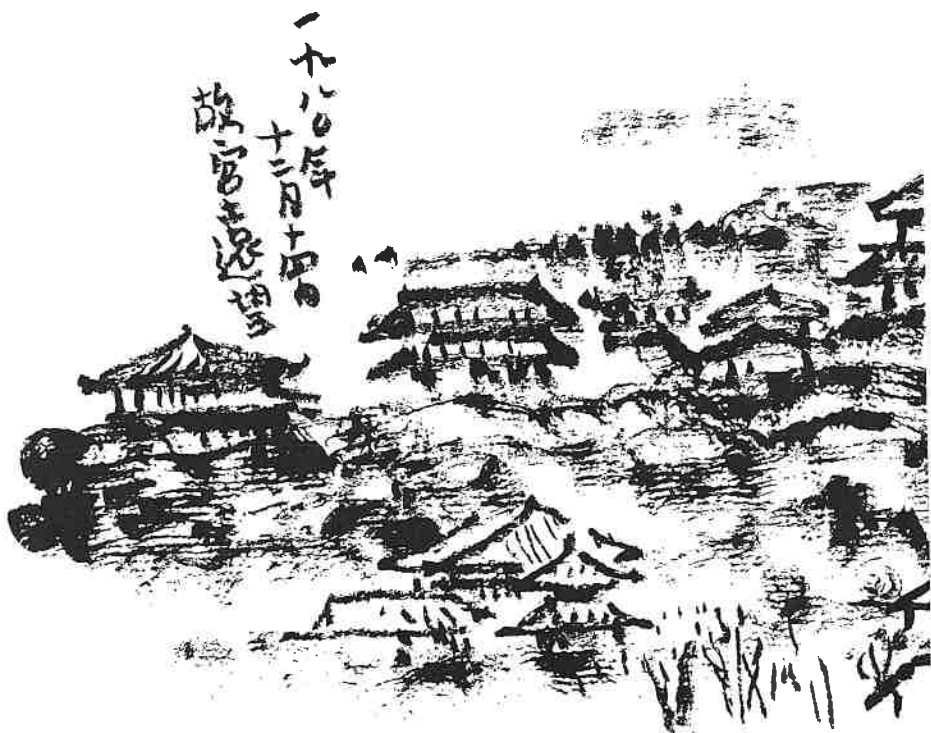 一九八〇年
十二月十四日
故宮遠望